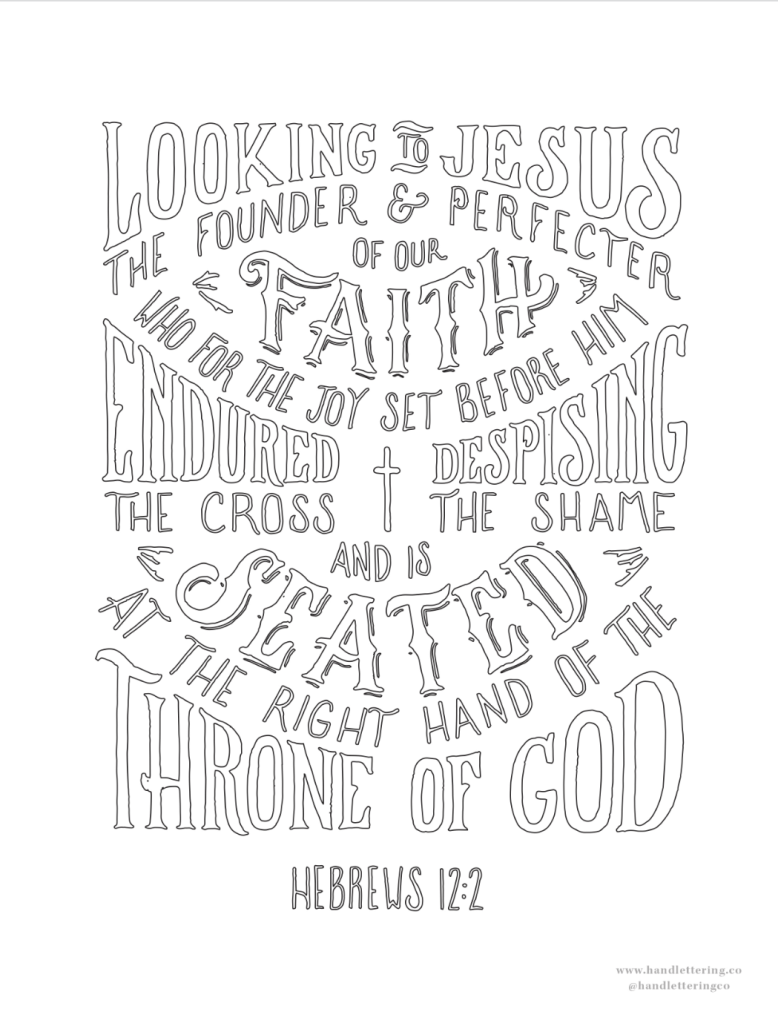 LOOKING TO JESUS
THE FOUNDER & PERFECTER
OF OUR
FAITH
WHO FOR THE JOY SET BEFORE HIM
ENDURED DESPISING
THE CROSS THE SHAME
AND IS
SEATED
AT THE RIGHT HAND OF THE
THRONE OF GOD
HEBREWS 12:2
www.handlettering.co
@handletteringco